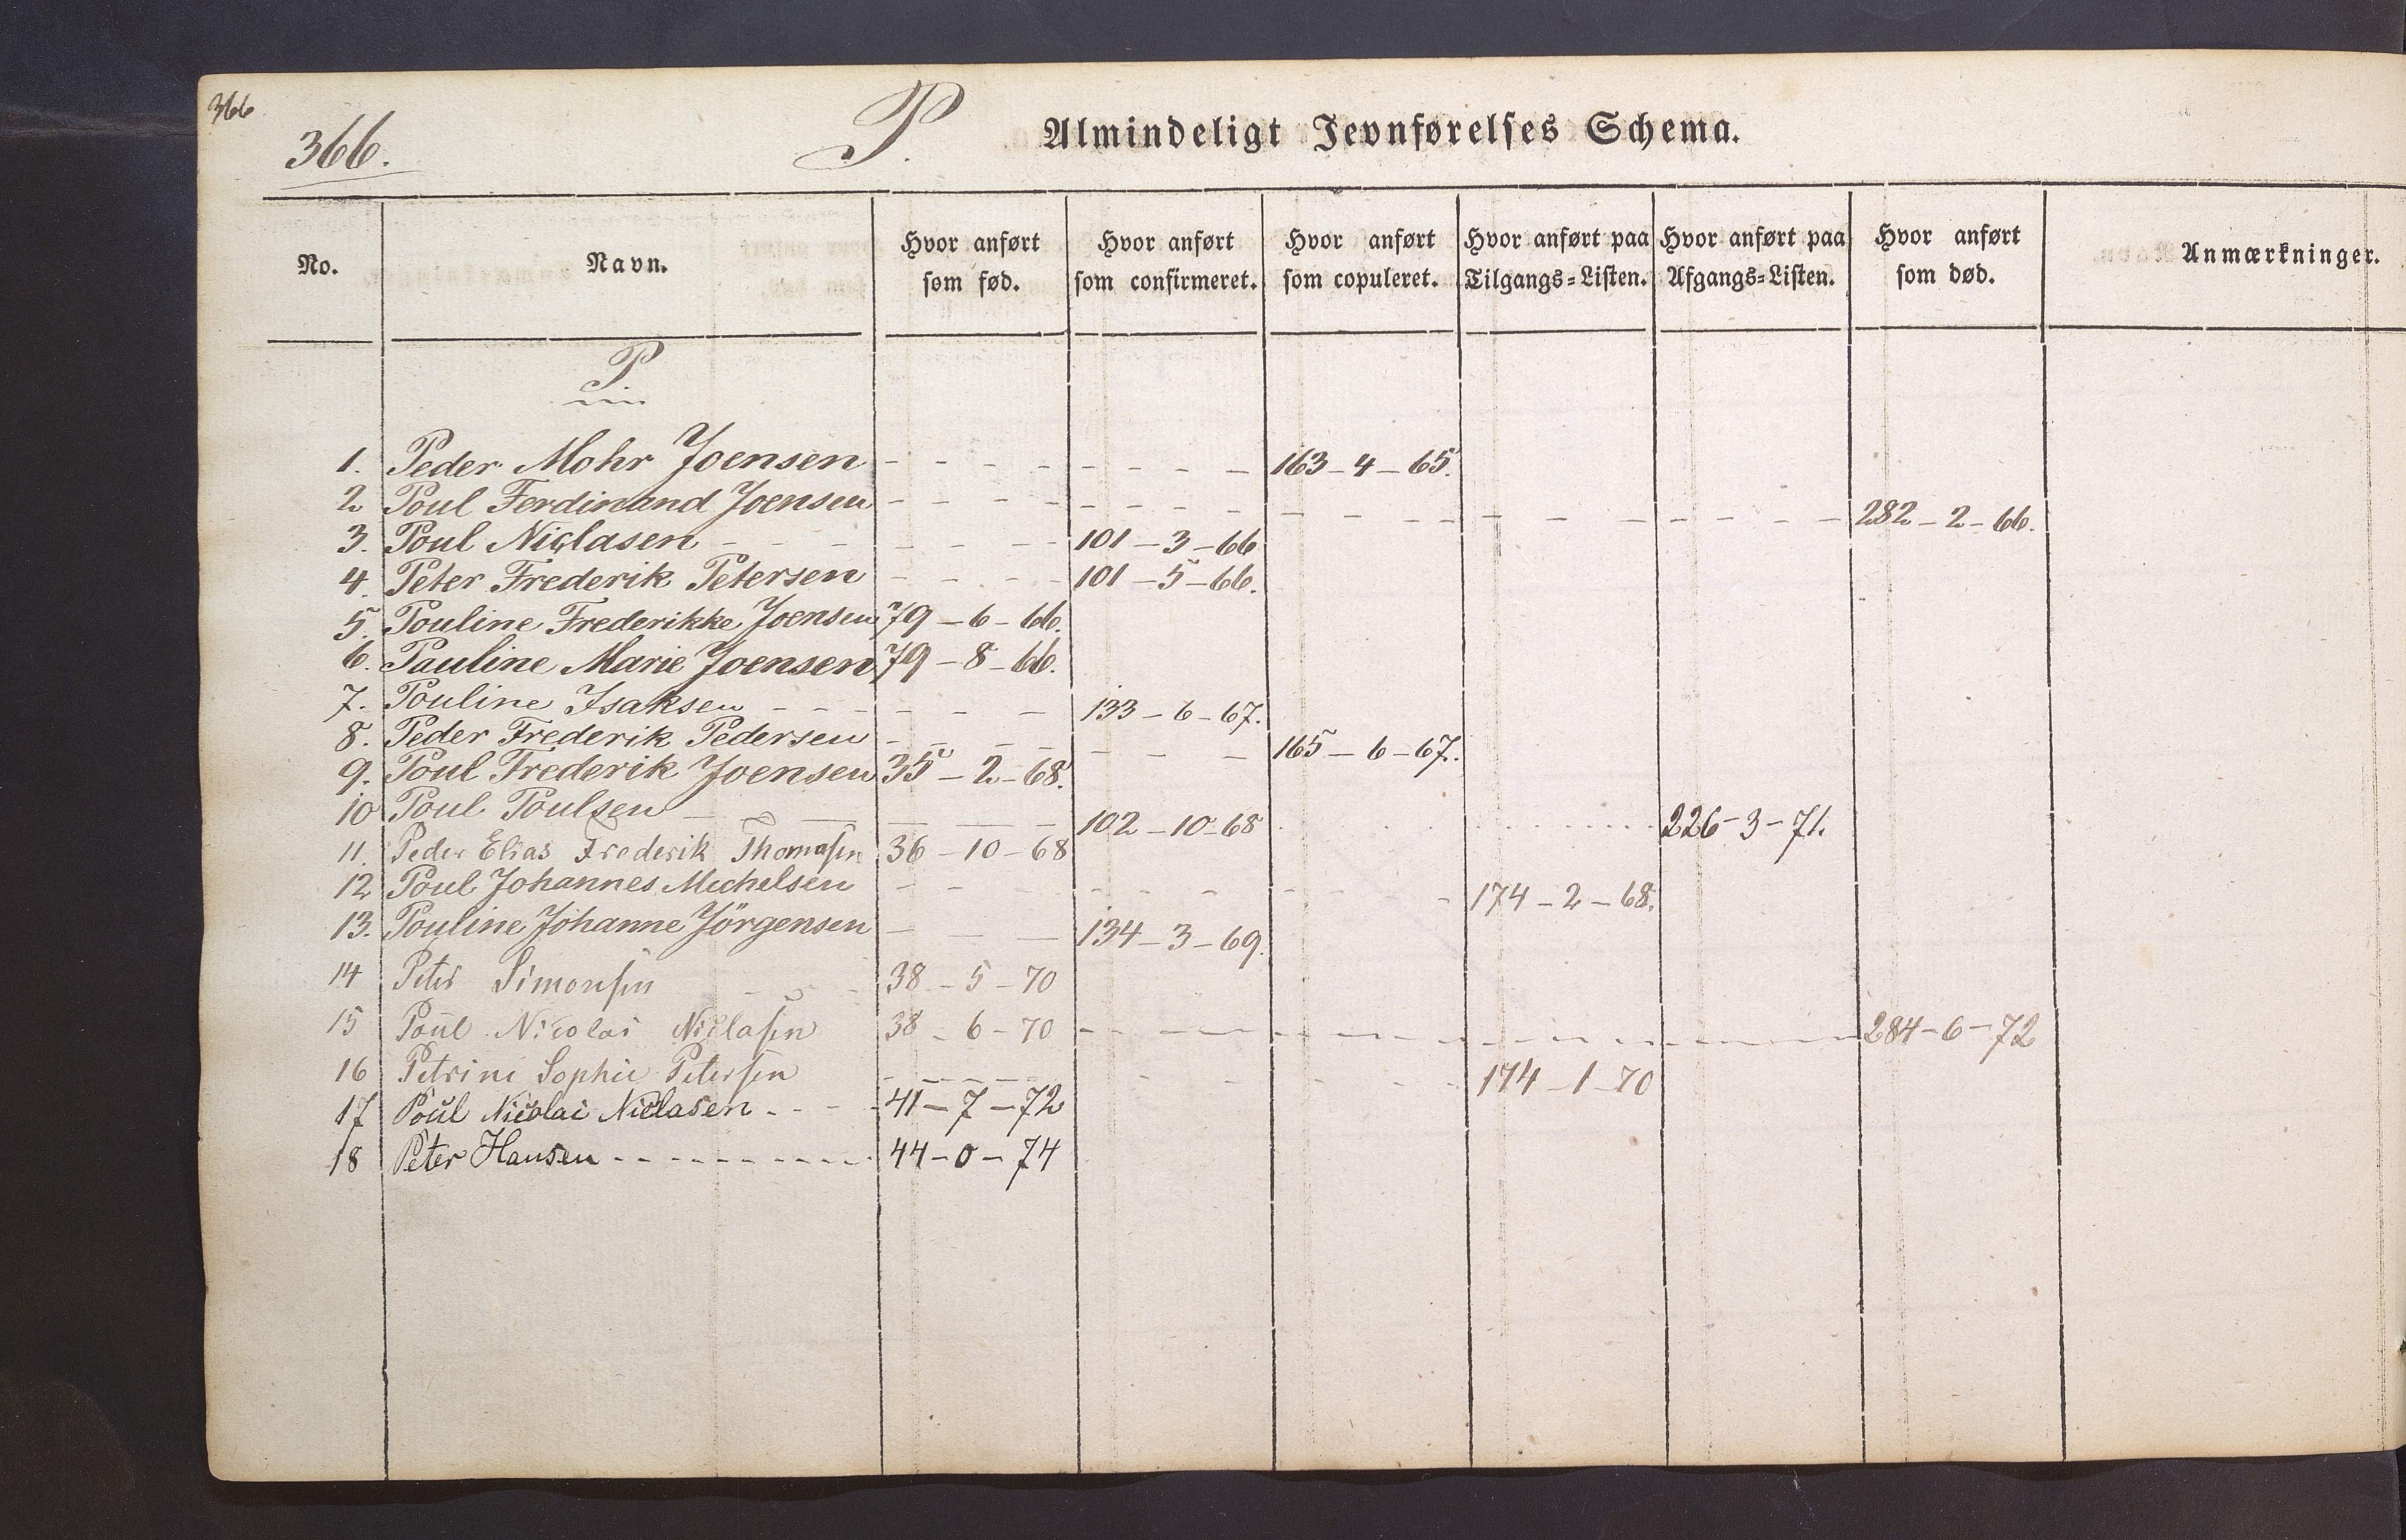 366
366.
P. Almindeligt Jevnførelses Schema.
No. Navn. Hvor anført som fød. Hvor anført som confirmeret. Hvor anført som copuleret. Hvor anført paa Tilgangs-Listen. Hvor anført paa Afgangs-Listen. Hvor anført som død. Anmærkninger.
P.
1. Peder Mohr Joensen - - - - - - - - 163 - 4 - 65.
2 Poul Ferdinand Joensen - - - - - - - - - - - - - - - - 282 - 2 - 66.
3. Poul Niclasen - - - - - - - 101 - 3 - 66
4. Peter Frederik Petersen - - - - 101 - 5 - 66.
5. Pouline Frederikke Joensen 79 - 6 - 66.
6. Pauline Marie Joensen 79 - 8 - 66.
7. Pouline Isaksen - - - - - - 133 - 6 - 67.
8. Peder Frederik Pedersen - - - - - - - 165 - 6 - 67.
9. Poul Frederik Joensen 35 - 2 - 68.
10 Poul Poulsen - - - - - 102 - 10 - 68 - - - - 226 - 3 - 71.
11. Peder Elias Frederik Thomasen 36 - 10 - 68
12 Poul Johannes Michelsen - - - - - - - - 174 - 2 - 68.
13. Pouline Johanne Jörgensen - - - 134 - 3 - 69.
14 Peter Simonsen - - - 38 - 5 - 70
15 Poul Nicolai Niclasen 38 - 6 - 70 - - - - - - - - 284 - 6 - 72
16 Petrine Sophie Petersen - - - - - - - - 174 - 1 - 70
17 Poul Nicolai Niclasen - - - 41 - 7 - 72
18 Peter Hansen - - - - - - - - 44 - 0 - 74